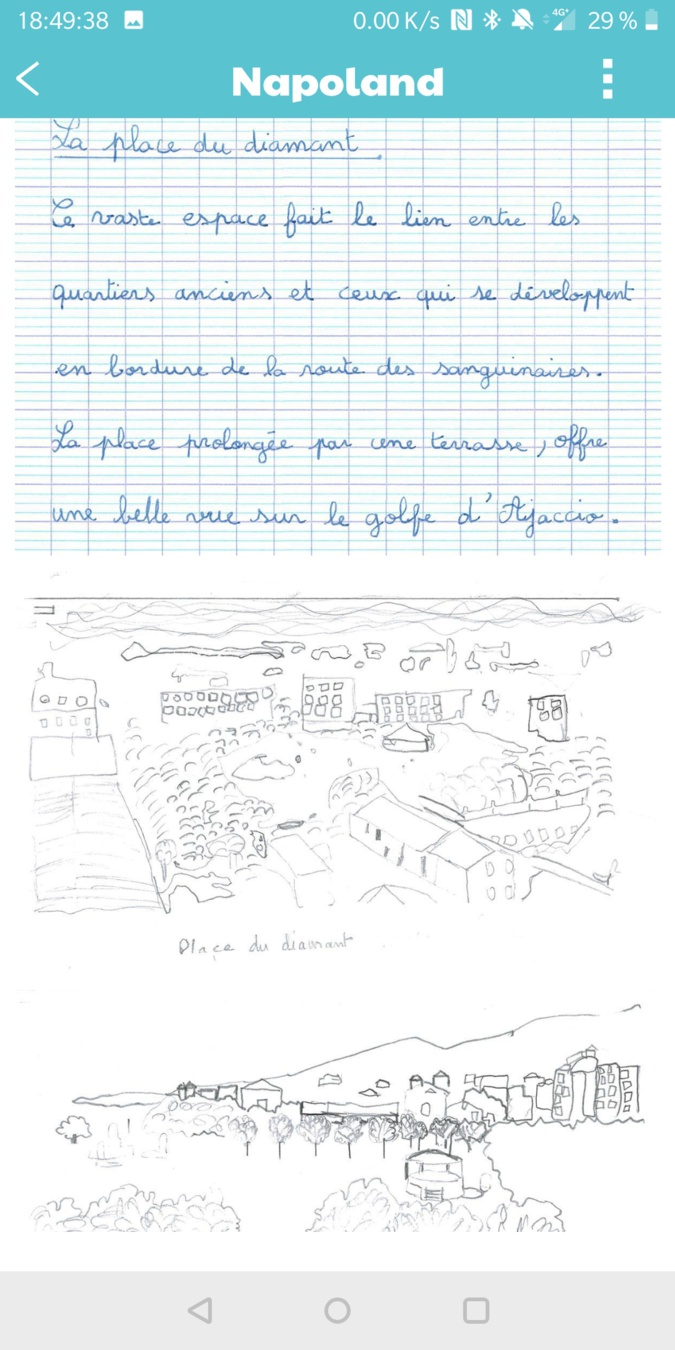 18:49:38 0.00 K/s 4G+ 29 %
Napoland
La place du diamant.
Ce vaste espace fait le lien entre les
quartiers anciens et ceux qui se développent
en bordure de la route des sanguinaires.
La place prolongée par une terrasse, offre
une belle vue sur le golfe d'Ajaccio.
Place du diamant